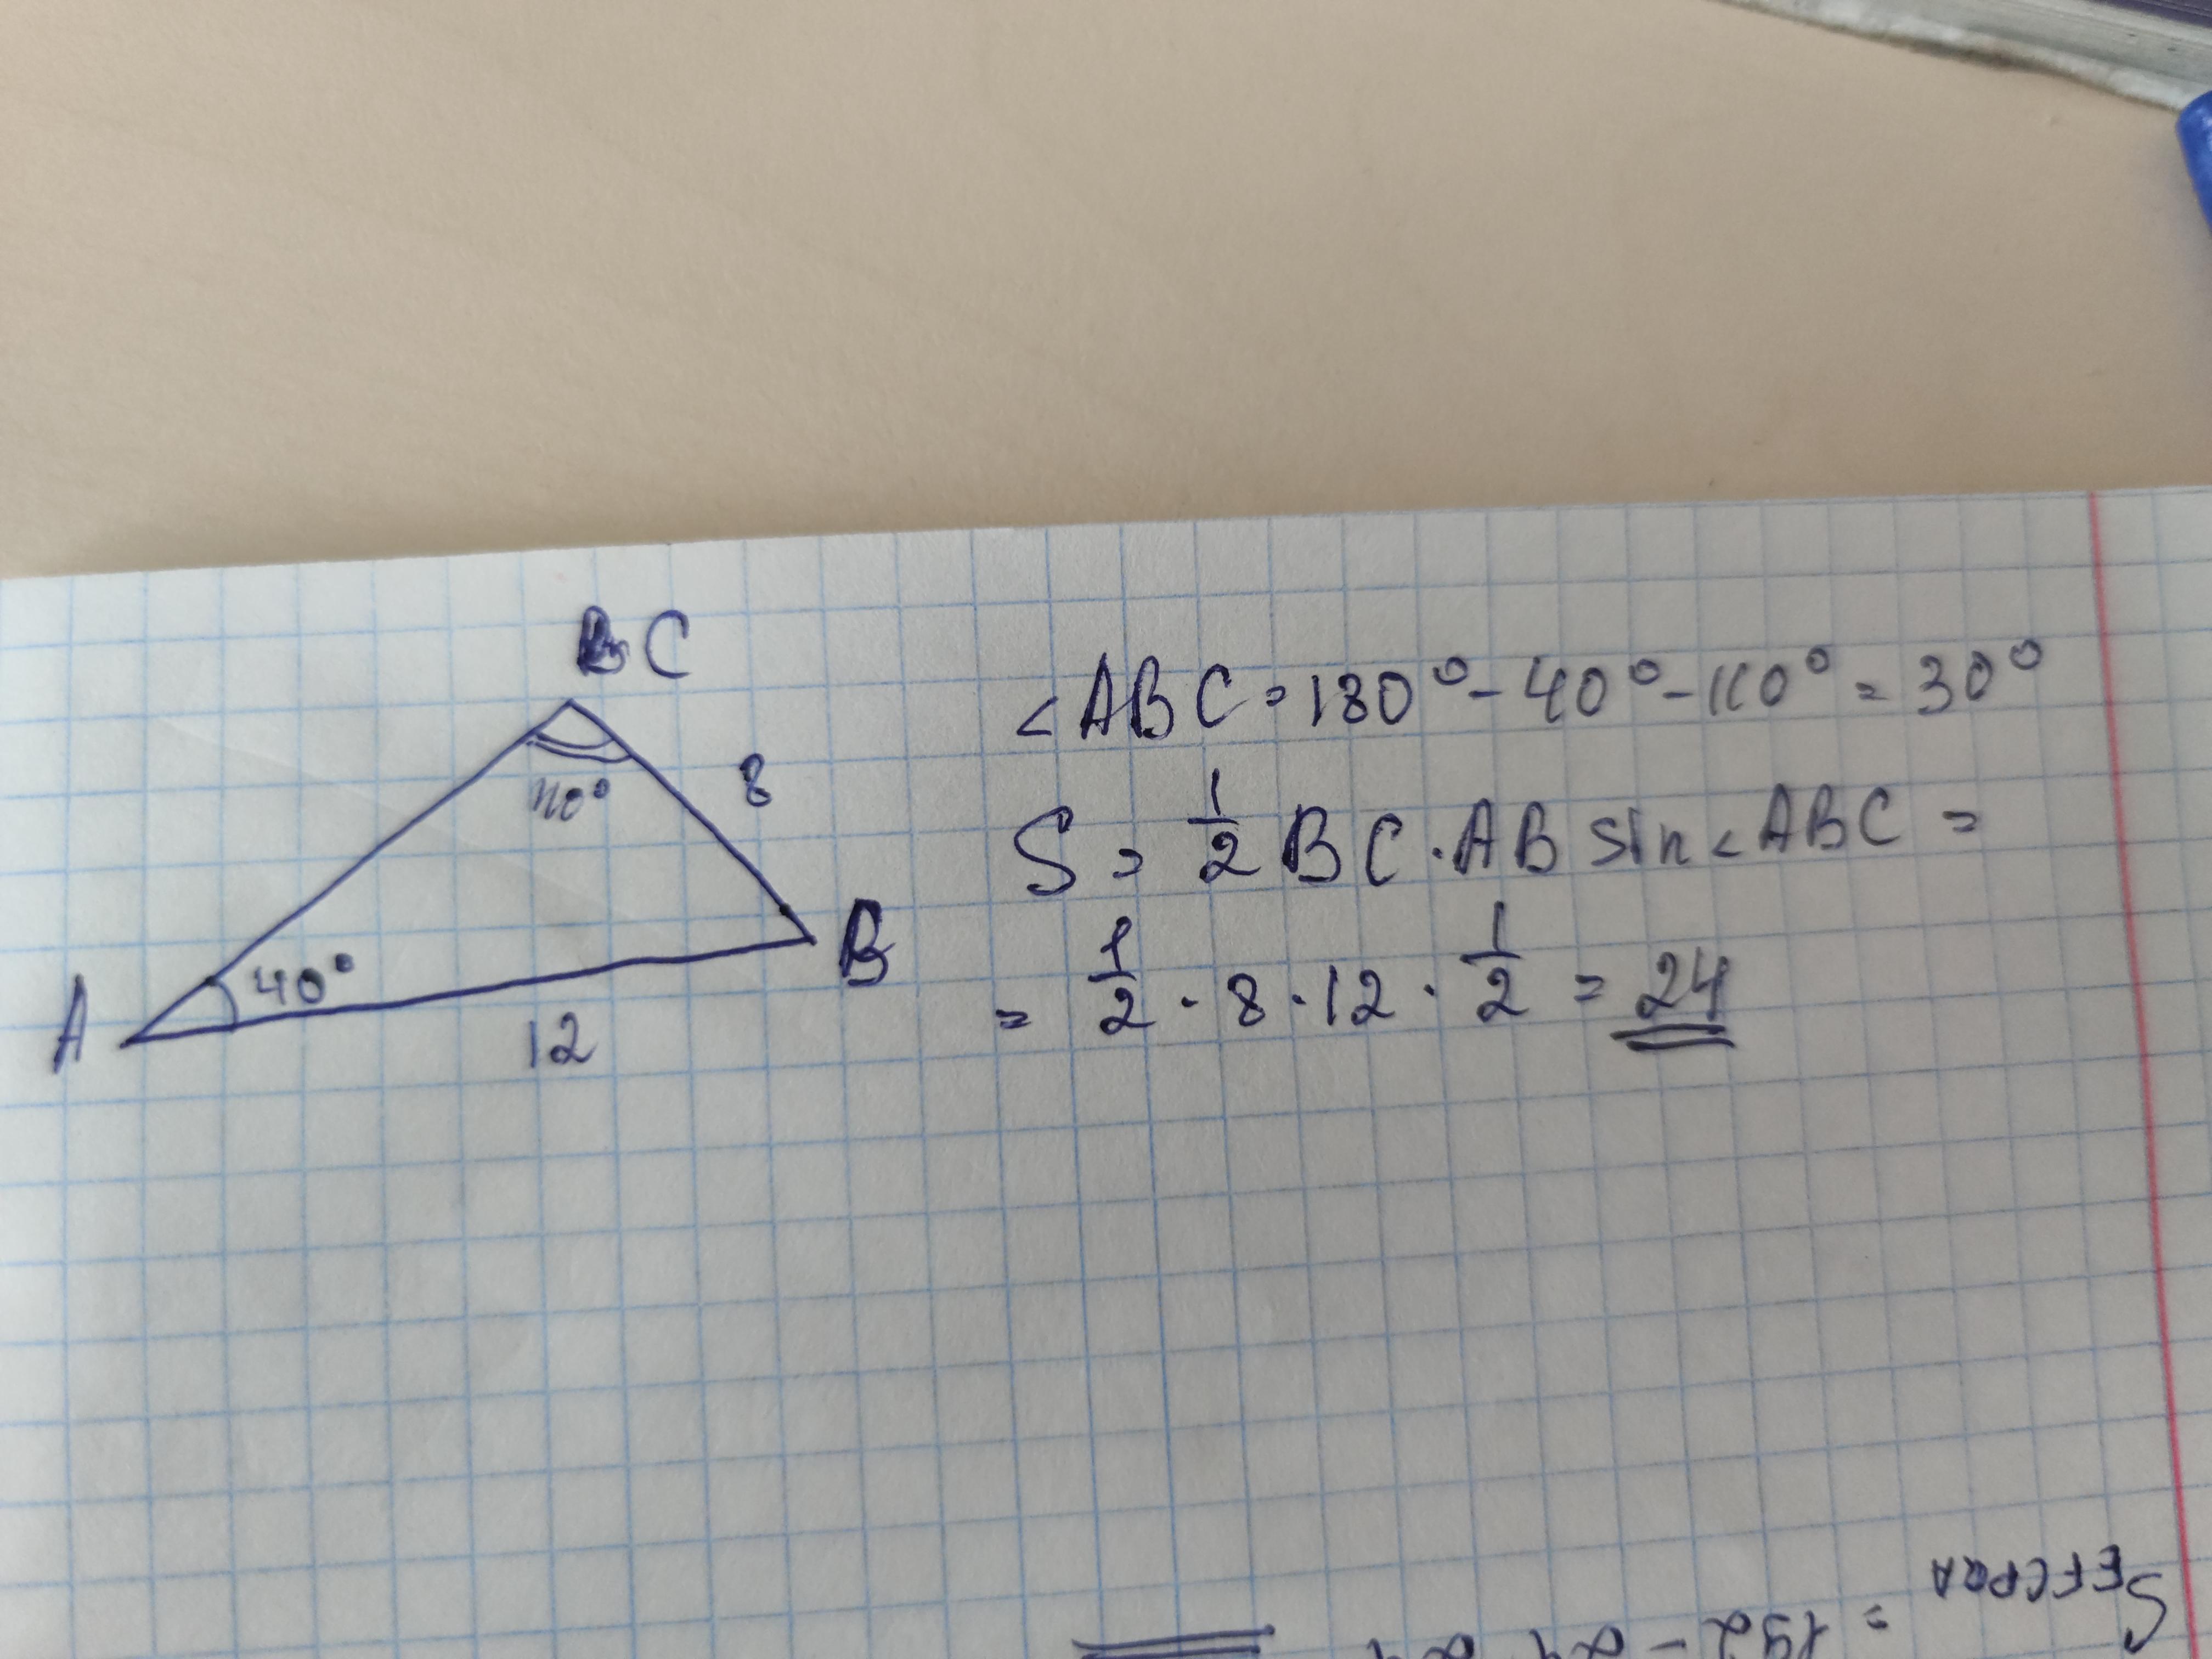 C
110°
8
40°
A
B
12
<ABC = 180° - 40° - 110° = 30°
S = 1/2 BC · AB sin <ABC =
= 1/2 · 8 · 12 · 1/2 = 24
S EFCPQA = 192 - 24